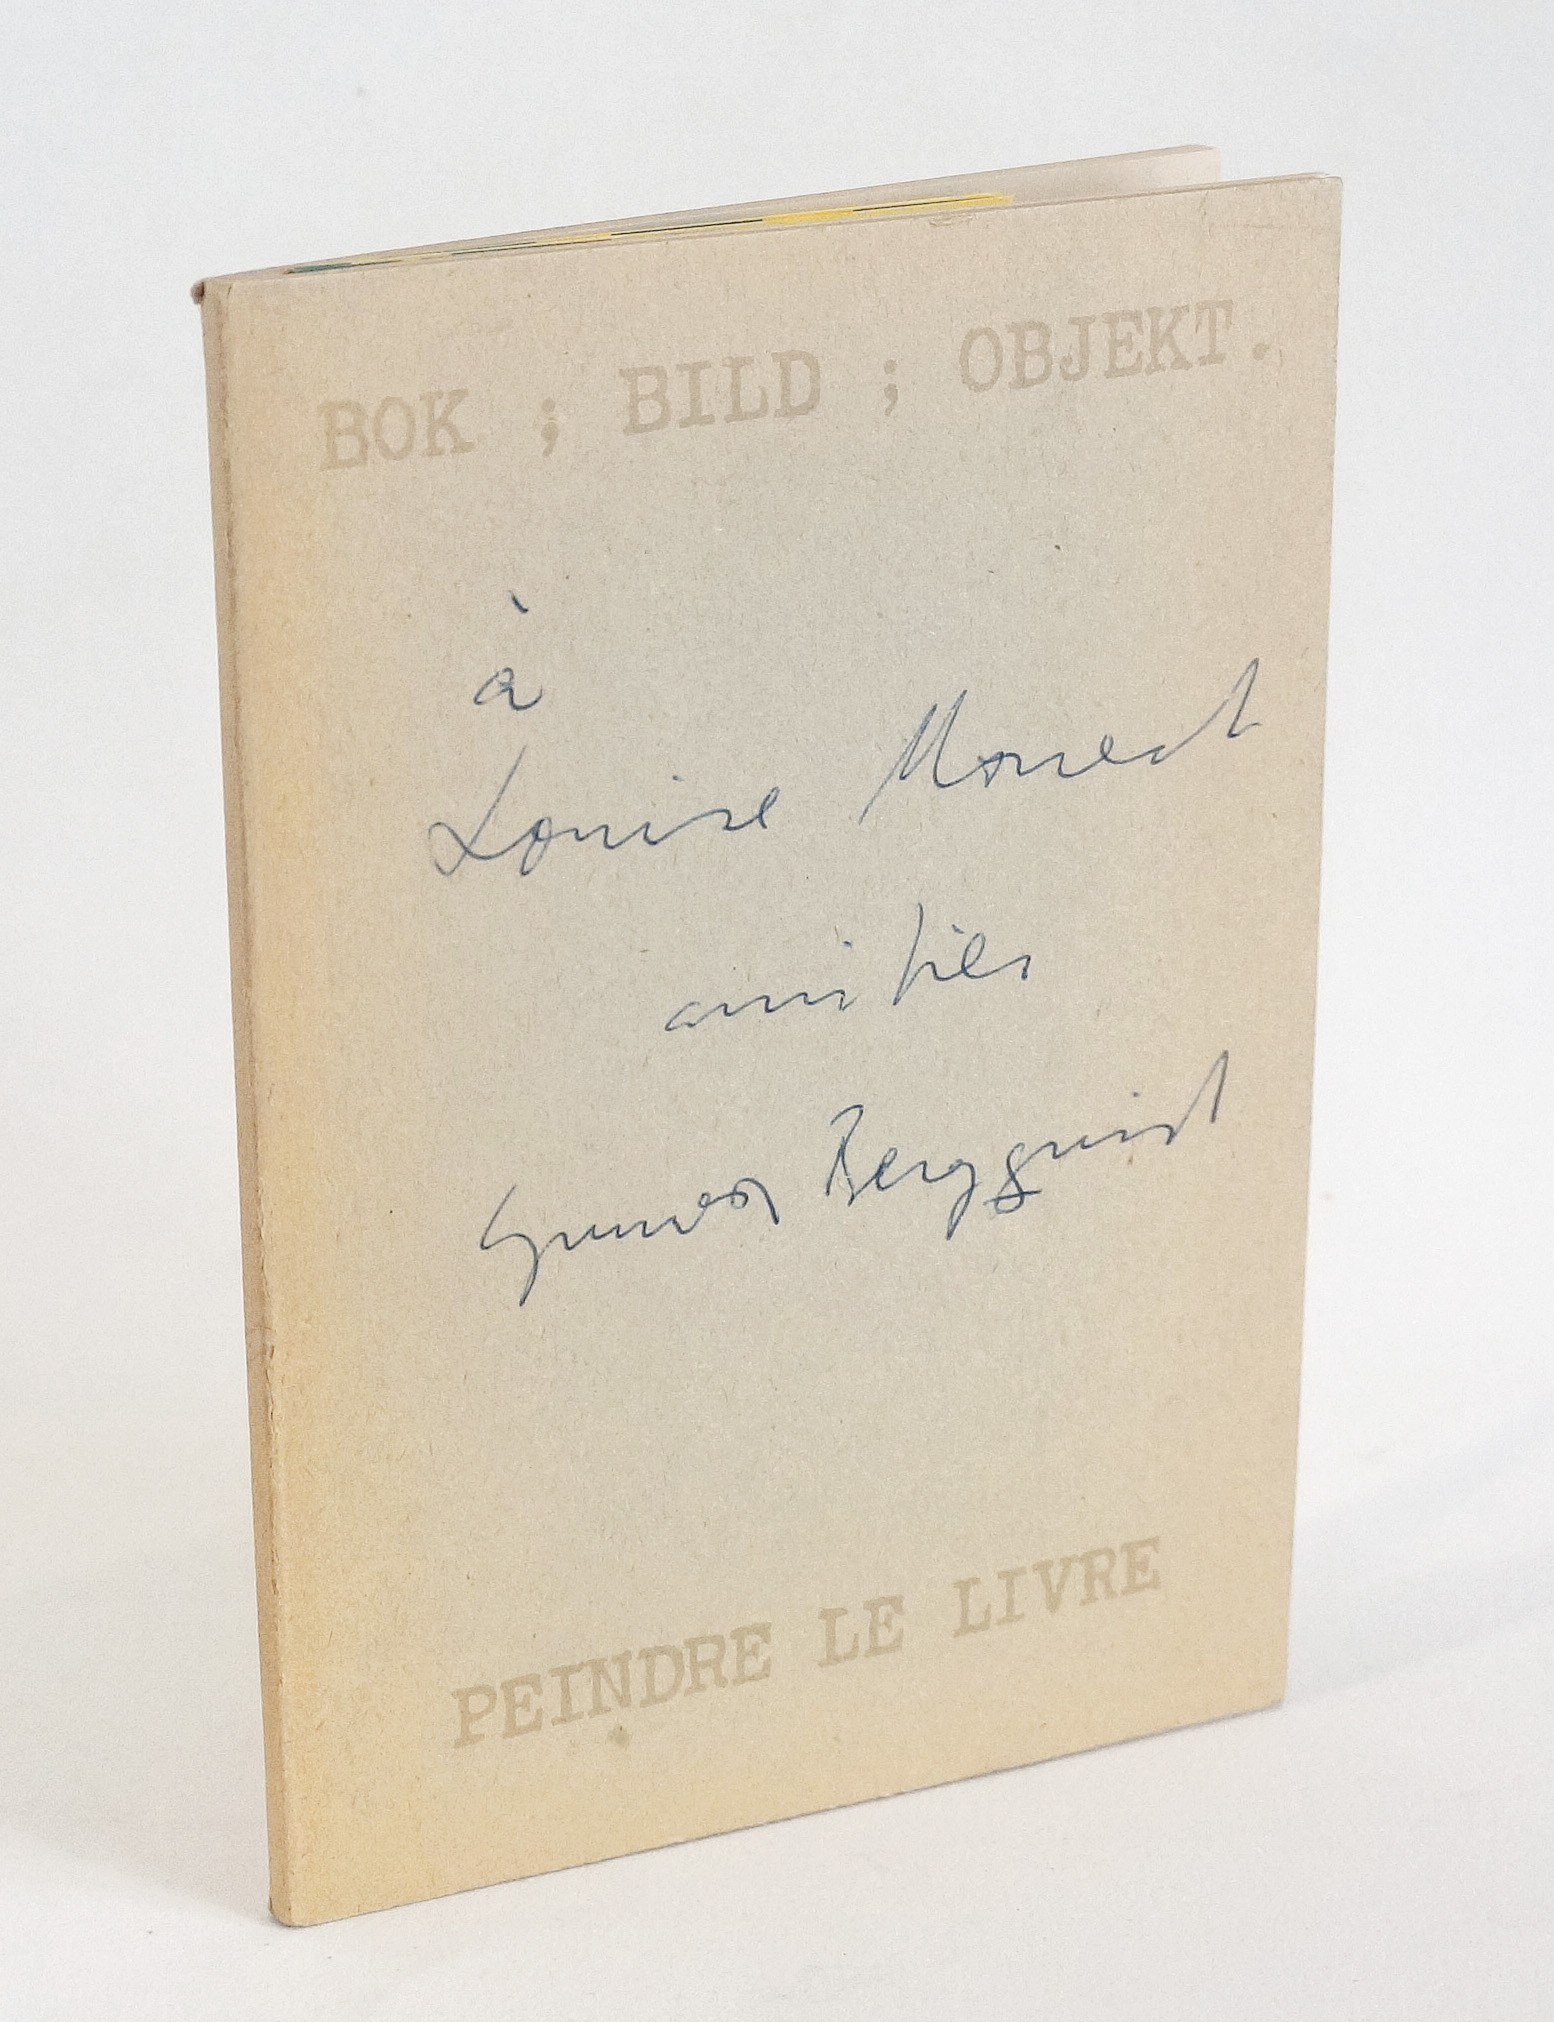 BOK ; BILD ; OBJEKT.
à
Louise
amitiés
Gunvor Bergquist
PEINDRE LE LIVRE